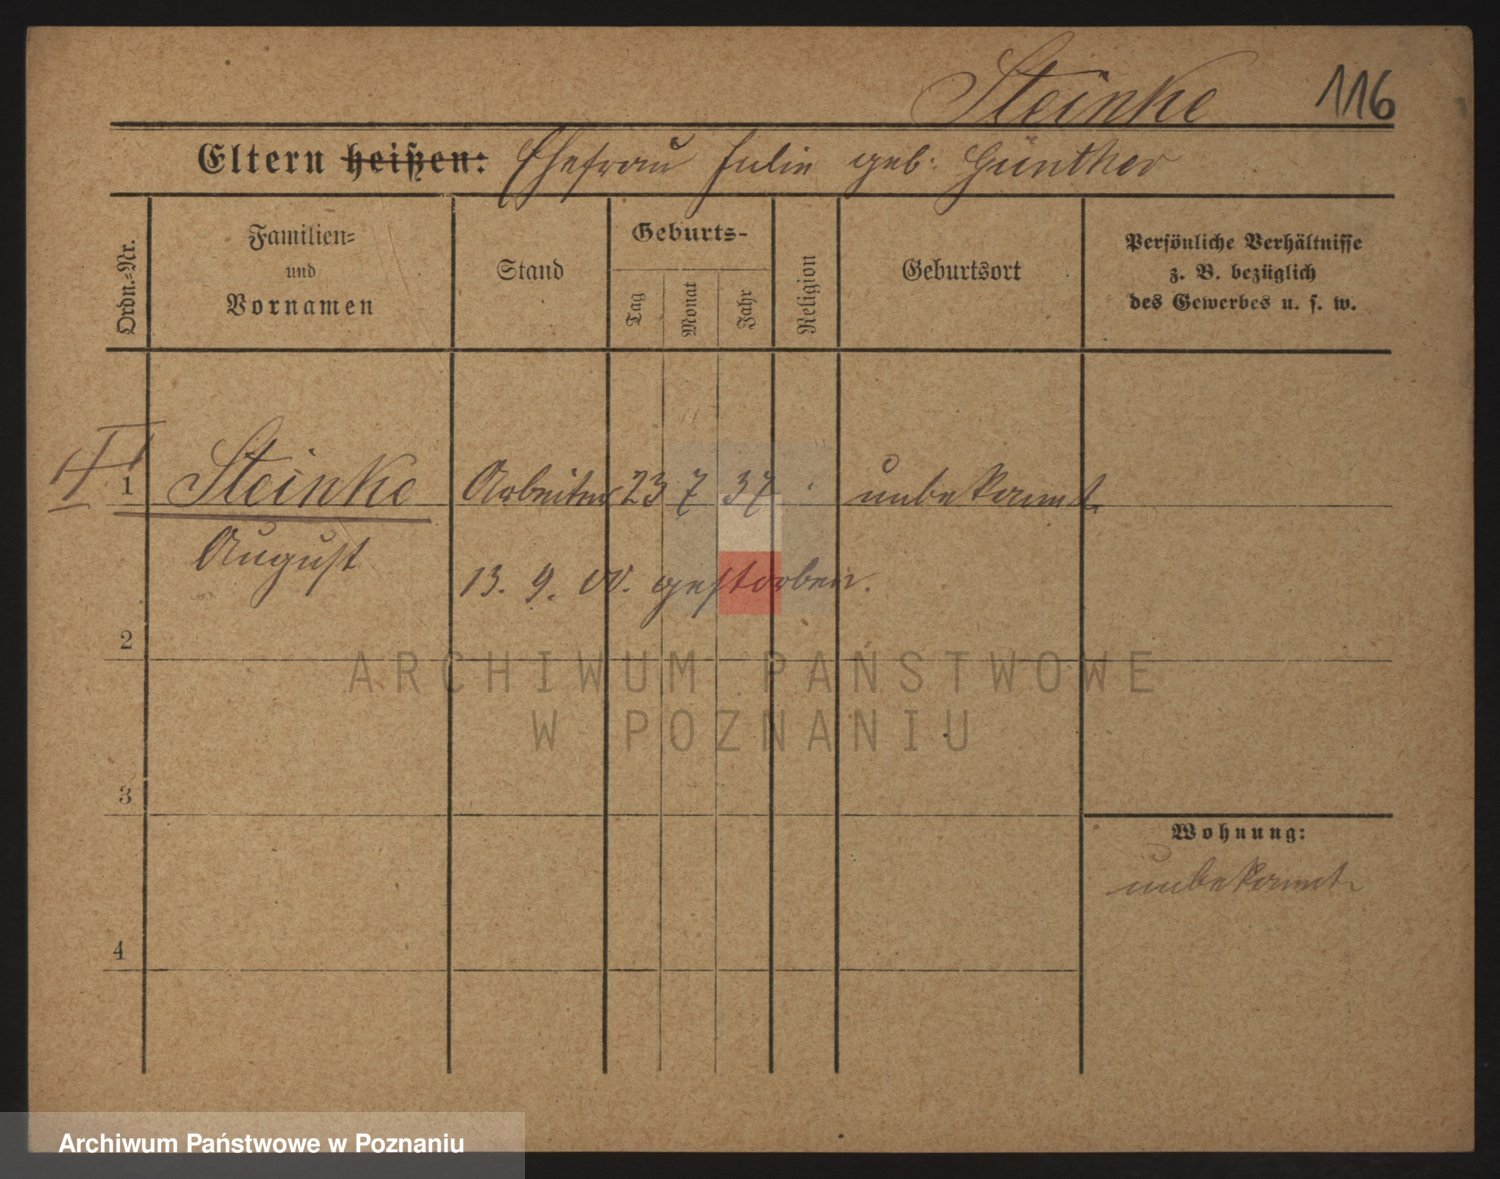 Steinke 116
Eltern heißen: Ehefrau Julie geb: Günther
Ordn.=Nr.
Familien=
und
Vornamen
Stand
Geburts-
Tag
Monat
Jahr
Religion
Geburtsort
Persönliche Verhältnisse
z. B. bezüglich
des Gewerbes u. s. w.
1 Steinke Arbeiter 23 7 37 unbekannt
August
13. 9. 00. gestorben.
2
ARCHIWUM PAŃSTWOWE
W POZNANIU
3
Wohnung:
unbekannt
4
Archiwum Państwowe w Poznaniu